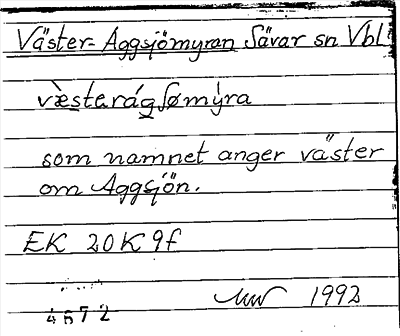 Väster-Aggsjömyran Sävar sn Vbl
væ̀starágʃømýra
som namnet anger väster
om Aggsjön.
EK 20K9f
1992
4672